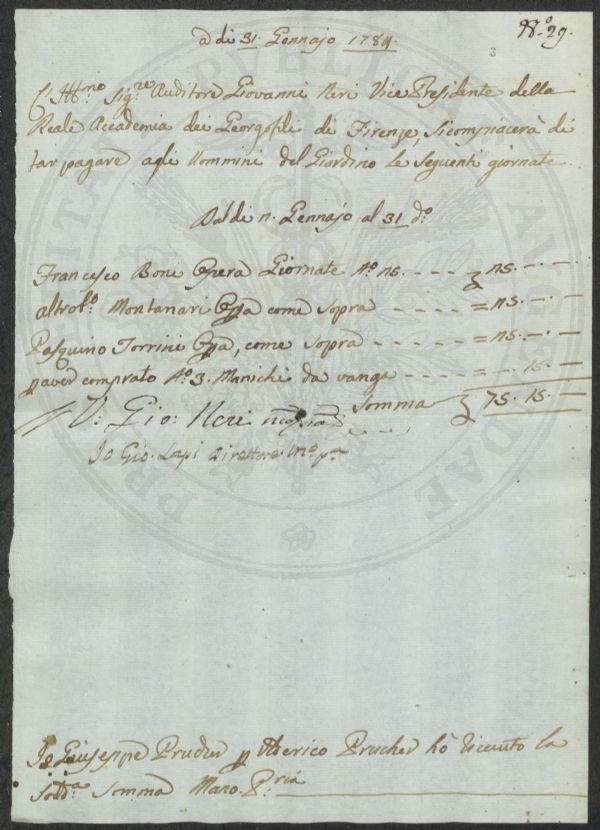 N.º 29.
3
a di 31. Gennajo 1784.
Ill.mo Sig.re Auditore Giovanni Neri Vice Presidente della
Reale Accademia dei Georgofili di Firenze, Si compiacerà di
far pagare agli Uommini del Giardino le Seguenti giornate
Dal di n. Gennajo al 31 d.º
Francesco Boni Opera Giornate N.º ns. - - - - ns. - -
altro Montanari come Sopra - - - - = ns. - -
Pasquino Torrini come Sopra - - - - = ns. - -
p aver comprato N.º 3. Manichi da vanga - - - - = - 15. -
Somma 75. 15. -
V: Gio: Neri
Io Gio. Lapi Direttore m.º p.ª
Io Giuseppe Prucher p Alberico Prucher hò ricevuto la
Sod.ª Somma Mano P.ria
PROSPERITATI PUBLICAE AUGENDAE